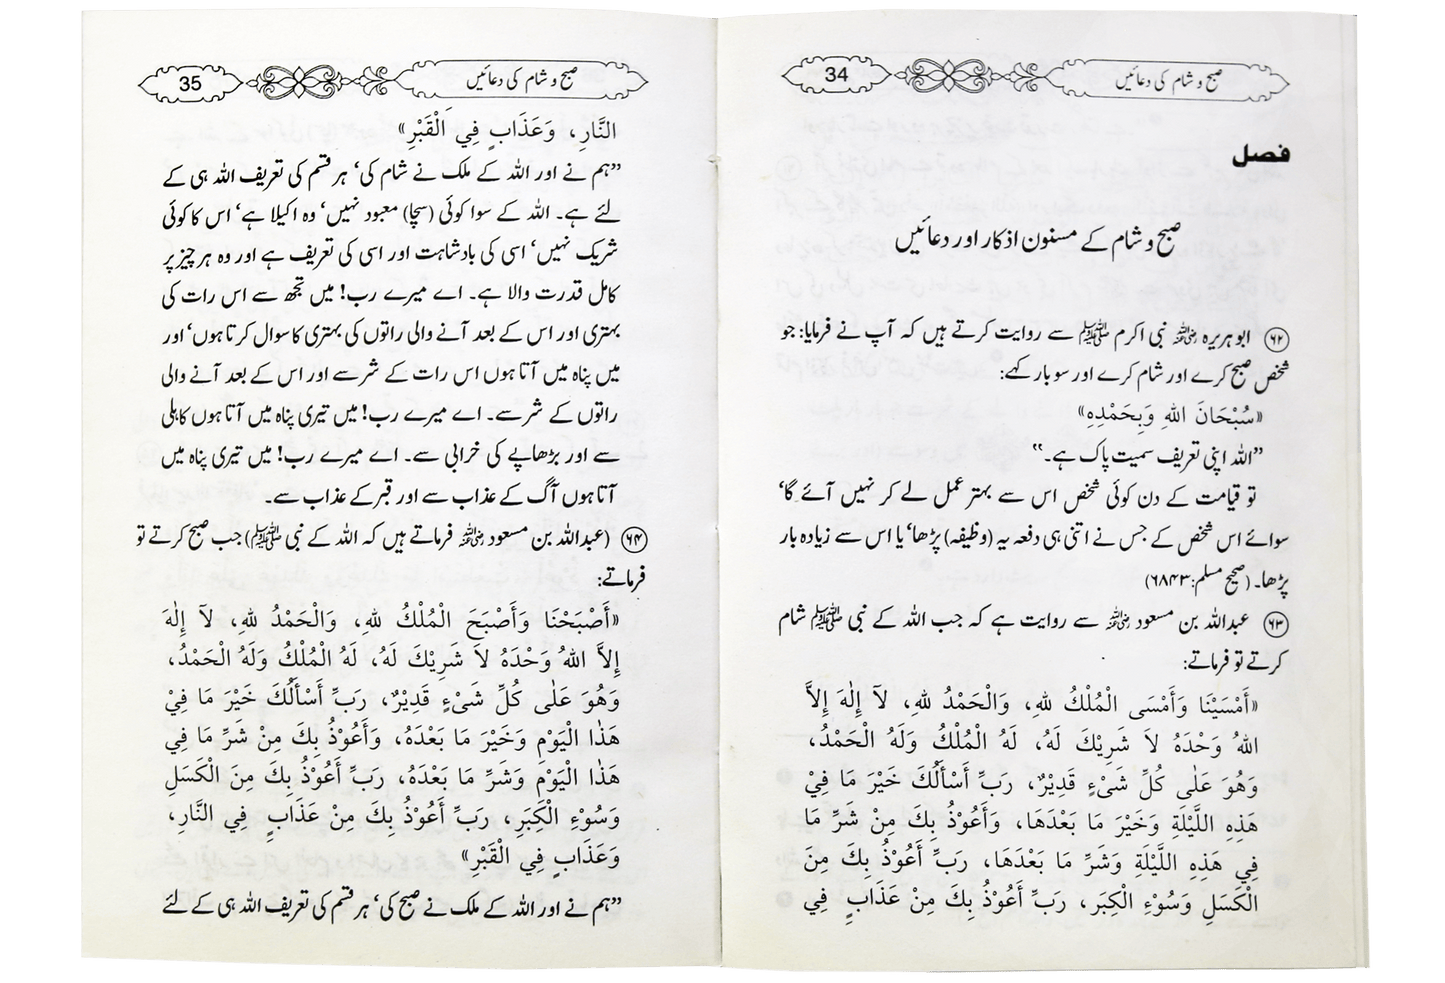 صبح و شام کی دعائیں 34
فصل
صبح و شام کے مسنون اذکار اور دعائیں
۶۲ ابوہریرہ رضی اللہ عنہ نبی اکرم ﷺ سے روایت کرتے ہیں کہ آپ نے فرمایا: جو
شخص صبح کرے اور شام کرے اور سو بار کہے:
«سُبْحَانَ اللهِ وَبِحَمْدِهِ»
”اللہ اپنی تعریف سمیت پاک ہے۔“
تو قیامت کے دن کوئی شخص اس سے بہتر عمل لے کر نہیں آئے گا‘
سوائے اس شخص کے جس نے اتنی ہی دفعہ یہ (وظیفہ) پڑھا‘ یا اس سے زیادہ بار
پڑھا۔ (صحیح مسلم: ۶۸۴۳)
۶۳ عبداللہ بن مسعود رضی اللہ عنہ سے روایت ہے کہ جب اللہ کے نبی ﷺ شام
کرتے تو فرماتے:
«أَمْسَيْنَا وَأَمْسَى الْمُلْكُ لِلهِ، وَالْحَمْدُ لِلهِ، لَآ إِلٰهَ إِلاَّ
اللهُ وَحْدَهُ لاَ شَرِيْكَ لَهُ، لَهُ الْمُلْكُ وَلَهُ الْحَمْدُ،
وَهُوَ عَلٰى كُلِّ شَىْءٍ قَدِيْرٌ، رَبِّ أَسْأَلُكَ خَيْرَ مَا فِيْ
هَذِهِ اللَّيْلَةِ وَخَيْرَ مَا بَعْدَهَا، وَأَعُوْذُ بِكَ مِنْ شَرِّ مَا
فِي هَذِهِ اللَّيْلَةِ وَشَرِّ مَا بَعْدَهَا، رَبِّ أَعُوْذُ بِكَ مِنَ
الْكَسَلِ وَسُوْءِ الْكِبَرِ، رَبِّ أَعُوْذُ بِكَ مِنْ عَذَابٍ فِي
صبح و شام کی دعائیں 35
النَّارِ، وَعَذَابٍ فِي الْقَبْرِ»
”ہم نے اور اللہ کے ملک نے شام کی‘ ہر قسم کی تعریف اللہ ہی کے
لئے ہے۔ اللہ کے سوا کوئی (سچا) معبود نہیں‘ وہ اکیلا ہے‘ اس کا کوئی
شریک نہیں‘ اسی کی بادشاہت اور اسی کی تعریف ہے اور وہ ہر چیز پر
کامل قدرت والا ہے۔ اے میرے رب! میں تجھ سے اس رات کی
بہتری اور اس کے بعد آنے والی راتوں کی بہتری کا سوال کرتا ہوں‘ اور
میں پناہ میں آتا ہوں اس رات کے شر سے اور اس کے بعد آنے والی
راتوں کے شر سے۔ اے میرے رب! میں تیری پناہ میں آتا ہوں کاہلی
سے اور بڑھاپے کی خرابی سے۔ اے میرے رب! میں تیری پناہ میں
آتا ہوں آگ کے عذاب سے اور قبر کے عذاب سے۔
۶۴ (عبداللہ بن مسعود رضی اللہ عنہ فرماتے ہیں کہ اللہ کے نبی ﷺ) جب صبح کرتے تو
فرماتے:
«أَصْبَحْنَا وَأَصْبَحَ الْمُلْكُ لِلهِ، وَالْحَمْدُ لِلهِ، لَآ إِلٰهَ
إِلاَّ اللهُ وَحْدَهُ لاَ شَرِيْكَ لَهُ، لَهُ الْمُلْكُ وَلَهُ الْحَمْدُ،
وَهُوَ عَلٰى كُلِّ شَىْءٍ قَدِيْرٌ، رَبِّ أَسْأَلُكَ خَيْرَ مَا فِيْ
هَذَا الْيَوْمِ وَخَيْرَ مَا بَعْدَهُ، وَأَعُوْذُ بِكَ مِنْ شَرِّ مَا فِي
هَذَا الْيَوْمِ وَشَرِّ مَا بَعْدَهُ، رَبِّ أَعُوْذُ بِكَ مِنَ الْكَسَلِ
وَسُوْءِ الْكِبَرِ، رَبِّ أَعُوْذُ بِكَ مِنْ عَذَابٍ فِي النَّارِ،
وَعَذَابٍ فِي الْقَبْرِ»
”ہم نے اور اللہ کے ملک نے صبح کی‘ ہر قسم کی تعریف اللہ ہی کے لئے